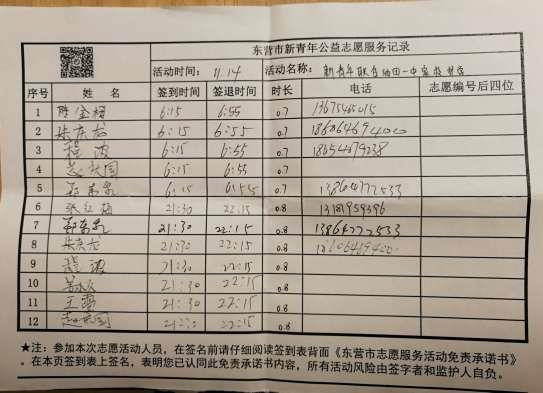 东营市新青年公益志愿服务记录
活动时间: 11.14 活动名称: 新青年联合油田一中家校共
序号 姓名 签到时间 签退时间 时长 电话 志愿编号后四位
1 6:15 6:55 0.7
2 朱庆龙 6:15 6:55 0.7 18606469400
3 程波 6:15 6:55 0.7
4 6:15 6:55 0.7
5 6:15 6:55 0.7 13864772533
6 张红梅 21:30 22:15 0.8 13181959396
7 21:30 22:15 0.8 13864772533
8 朱庆龙 21:30 22:15 0.8 18606469400
9 程波 21:30 22:15 0.8
10 21:30 22:15 0.8
11 21:30 22:15 0.8
12 21:30 22:15 0.8
★注:参加本次志愿活动人员,在签名前请仔细阅读签到表背面《东营市志愿服务活动免责承诺书》
。在本页签到表上签名,表明您已认同此免责承诺书内容,所有活动风险由签字者和监护人自负。